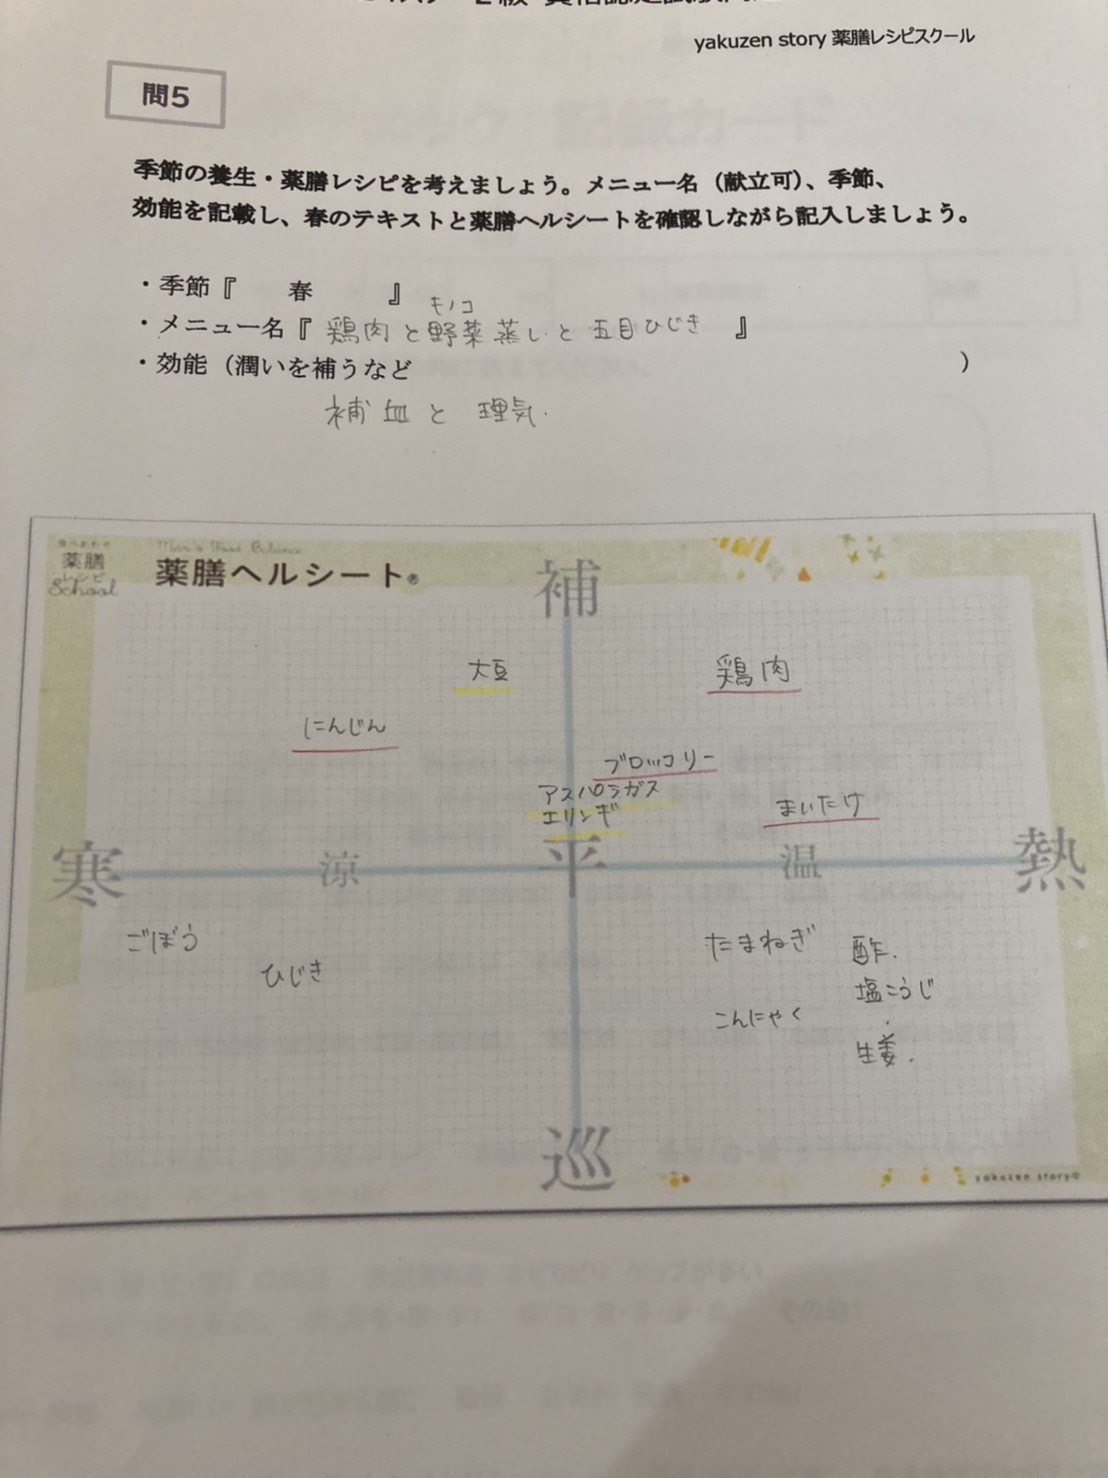 yakuzen story 薬膳レシピスクール
問5
季節の養生・薬膳レシピを考えましょう。メニュー名（献立可）、季節、
効能を記載し、春のテキストと薬膳ヘルシートを確認しながら記入しましょう。
・季節『 春 』
キノコ
・メニュー名『 鶏肉と野菜蒸しと五目ひじき 』
・効能（潤いを補うなど ）
補血と 理気.
薬膳
レシピ
School
薬膳ヘルシート®
補
大豆
鶏肉
にんじん
ブロッコリー
アスパラガス
エリンギ
まいたけ
寒
涼
平
温
熱
ごぼう
ひじき
たまねぎ
酢.
塩こうじ
こんにゃく
生姜.
巡
yakuzen story®